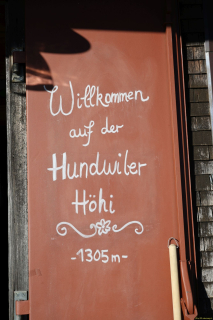 Willkommen
auf der
Hundwiler
Höhi
-1305m-